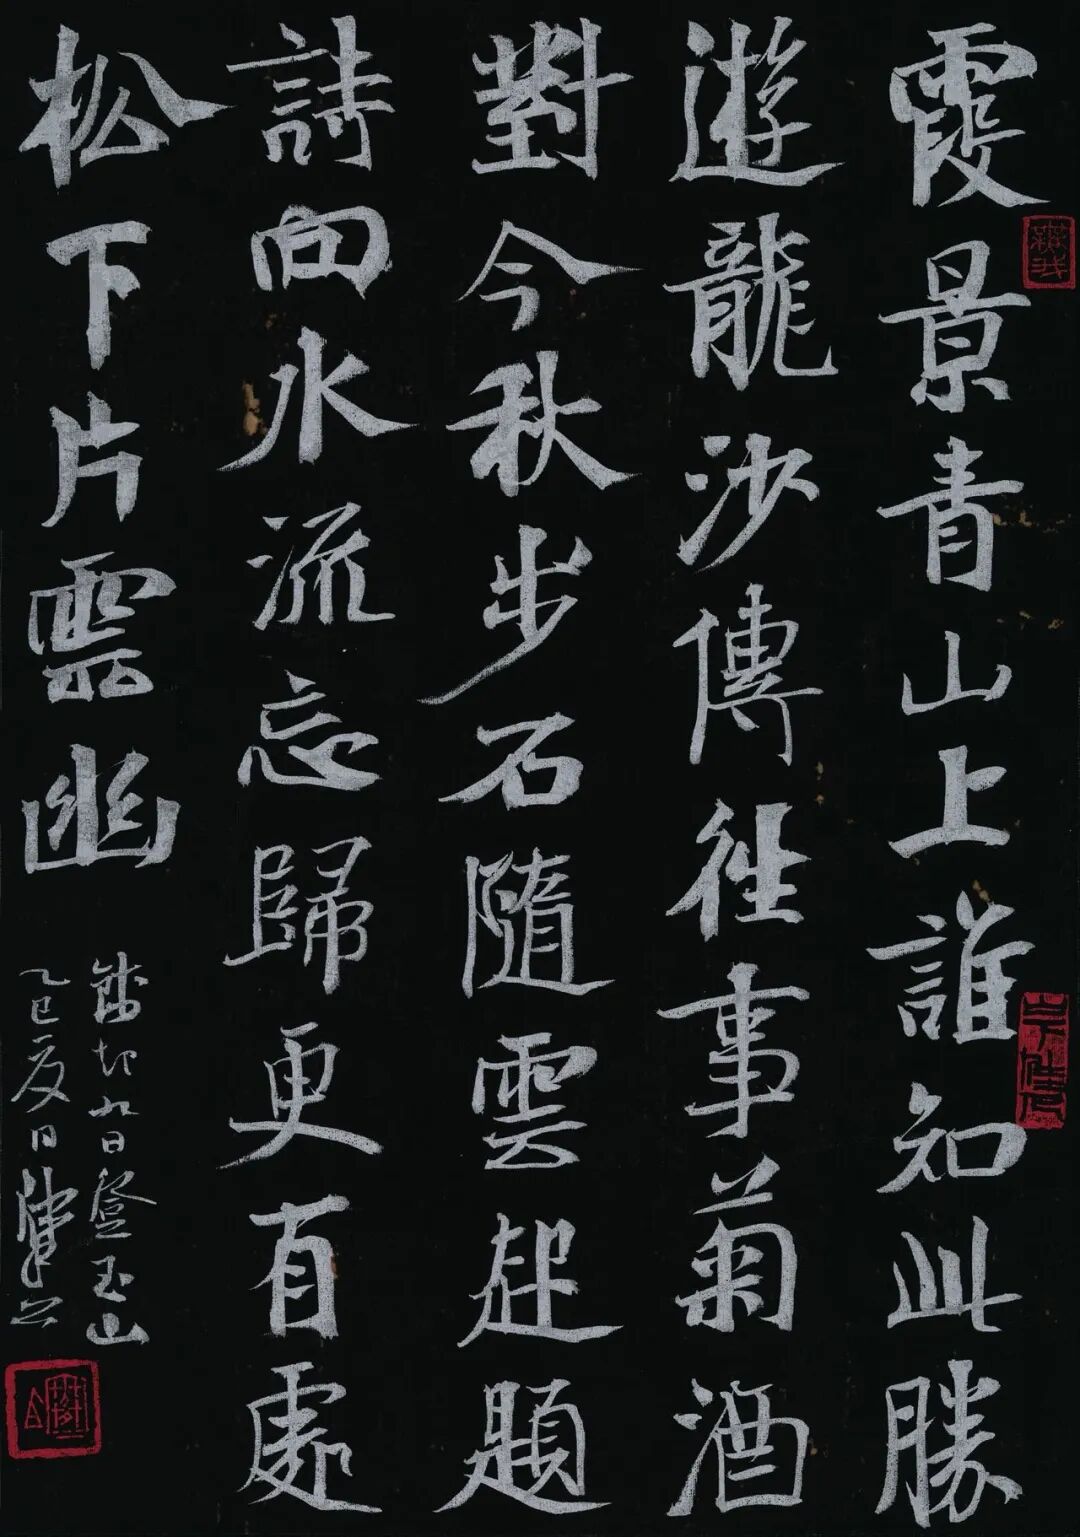 霞景青山上誰知此勝
遊龍沙傳往事菊酒
對今秋步石隨雲起題
詩向水流忘歸更有處
松下片雲幽
錢起九日登玉山
乙巳夏月